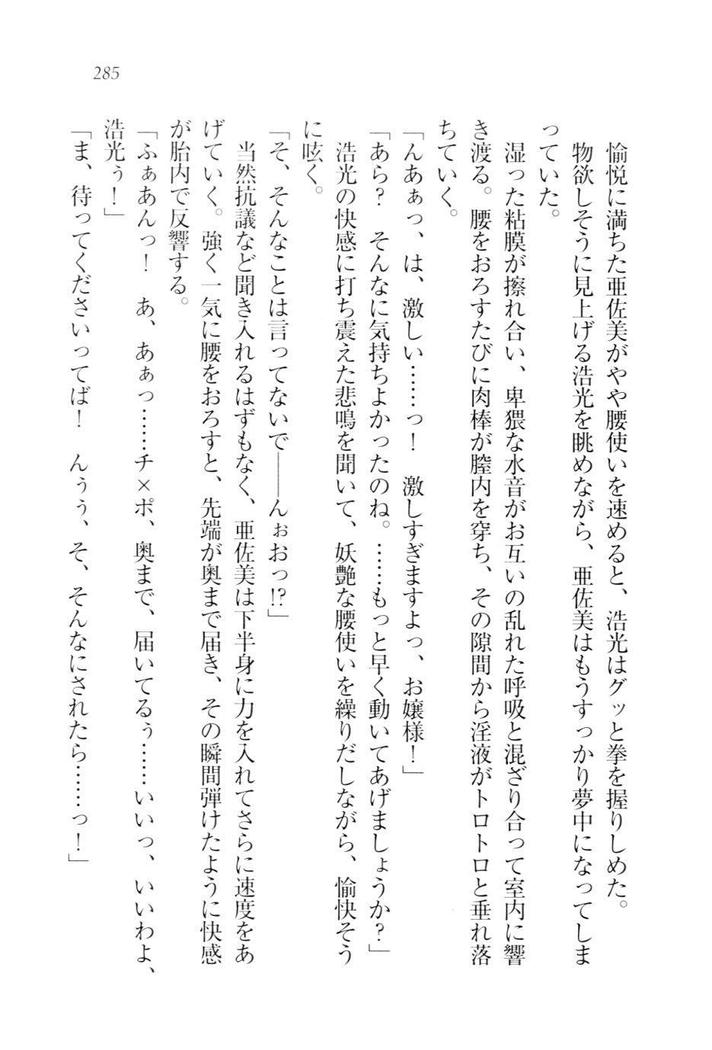 285
愉悦に満ちた亜佐美がやや腰使いを速めると、浩光はグッと拳を握りしめた。
物欲しそうに見上げる浩光を眺めながら、亜佐美はもうすっかり夢中になってしま
っていた。
湿った粘膜が擦れ合い、卑猥な水音がお互いの乱れた呼吸と混ざり合って室内に響
き渡る。腰をおろすたびに肉棒が膣内を穿ち、その隙間から淫液がトロトロと垂れ落
ちていく。
「んあぁっ、は、激しい……っ！　激しすぎますよっ、お嬢様！」
「あら？　そんなに気持ちよかったのね。……もっと早く動いてあげましょうか？」
浩光の快感に打ち震えた悲鳴を聞いて、妖艶な腰使いを繰りだしながら、愉快そう
に呟く。
「そ、そんなことは言ってないで――んぉおっ!?」
当然抗議など聞き入れるはずもなく、亜佐美は下半身に力を入れてさらに速度をあ
げていく。強く一気に腰をおろすと、先端が奥まで届き、その瞬間弾けたように快感
が胎内で反響する。
「ふぁあんっ！　あ、あぁっ……チ×ポ、奥まで、届いてるぅ……いいっ、いいわよ、
浩光ぅ！」
「ま、待ってくださいってば！　んぅぅ、そ、そんなにされたら……っ！」